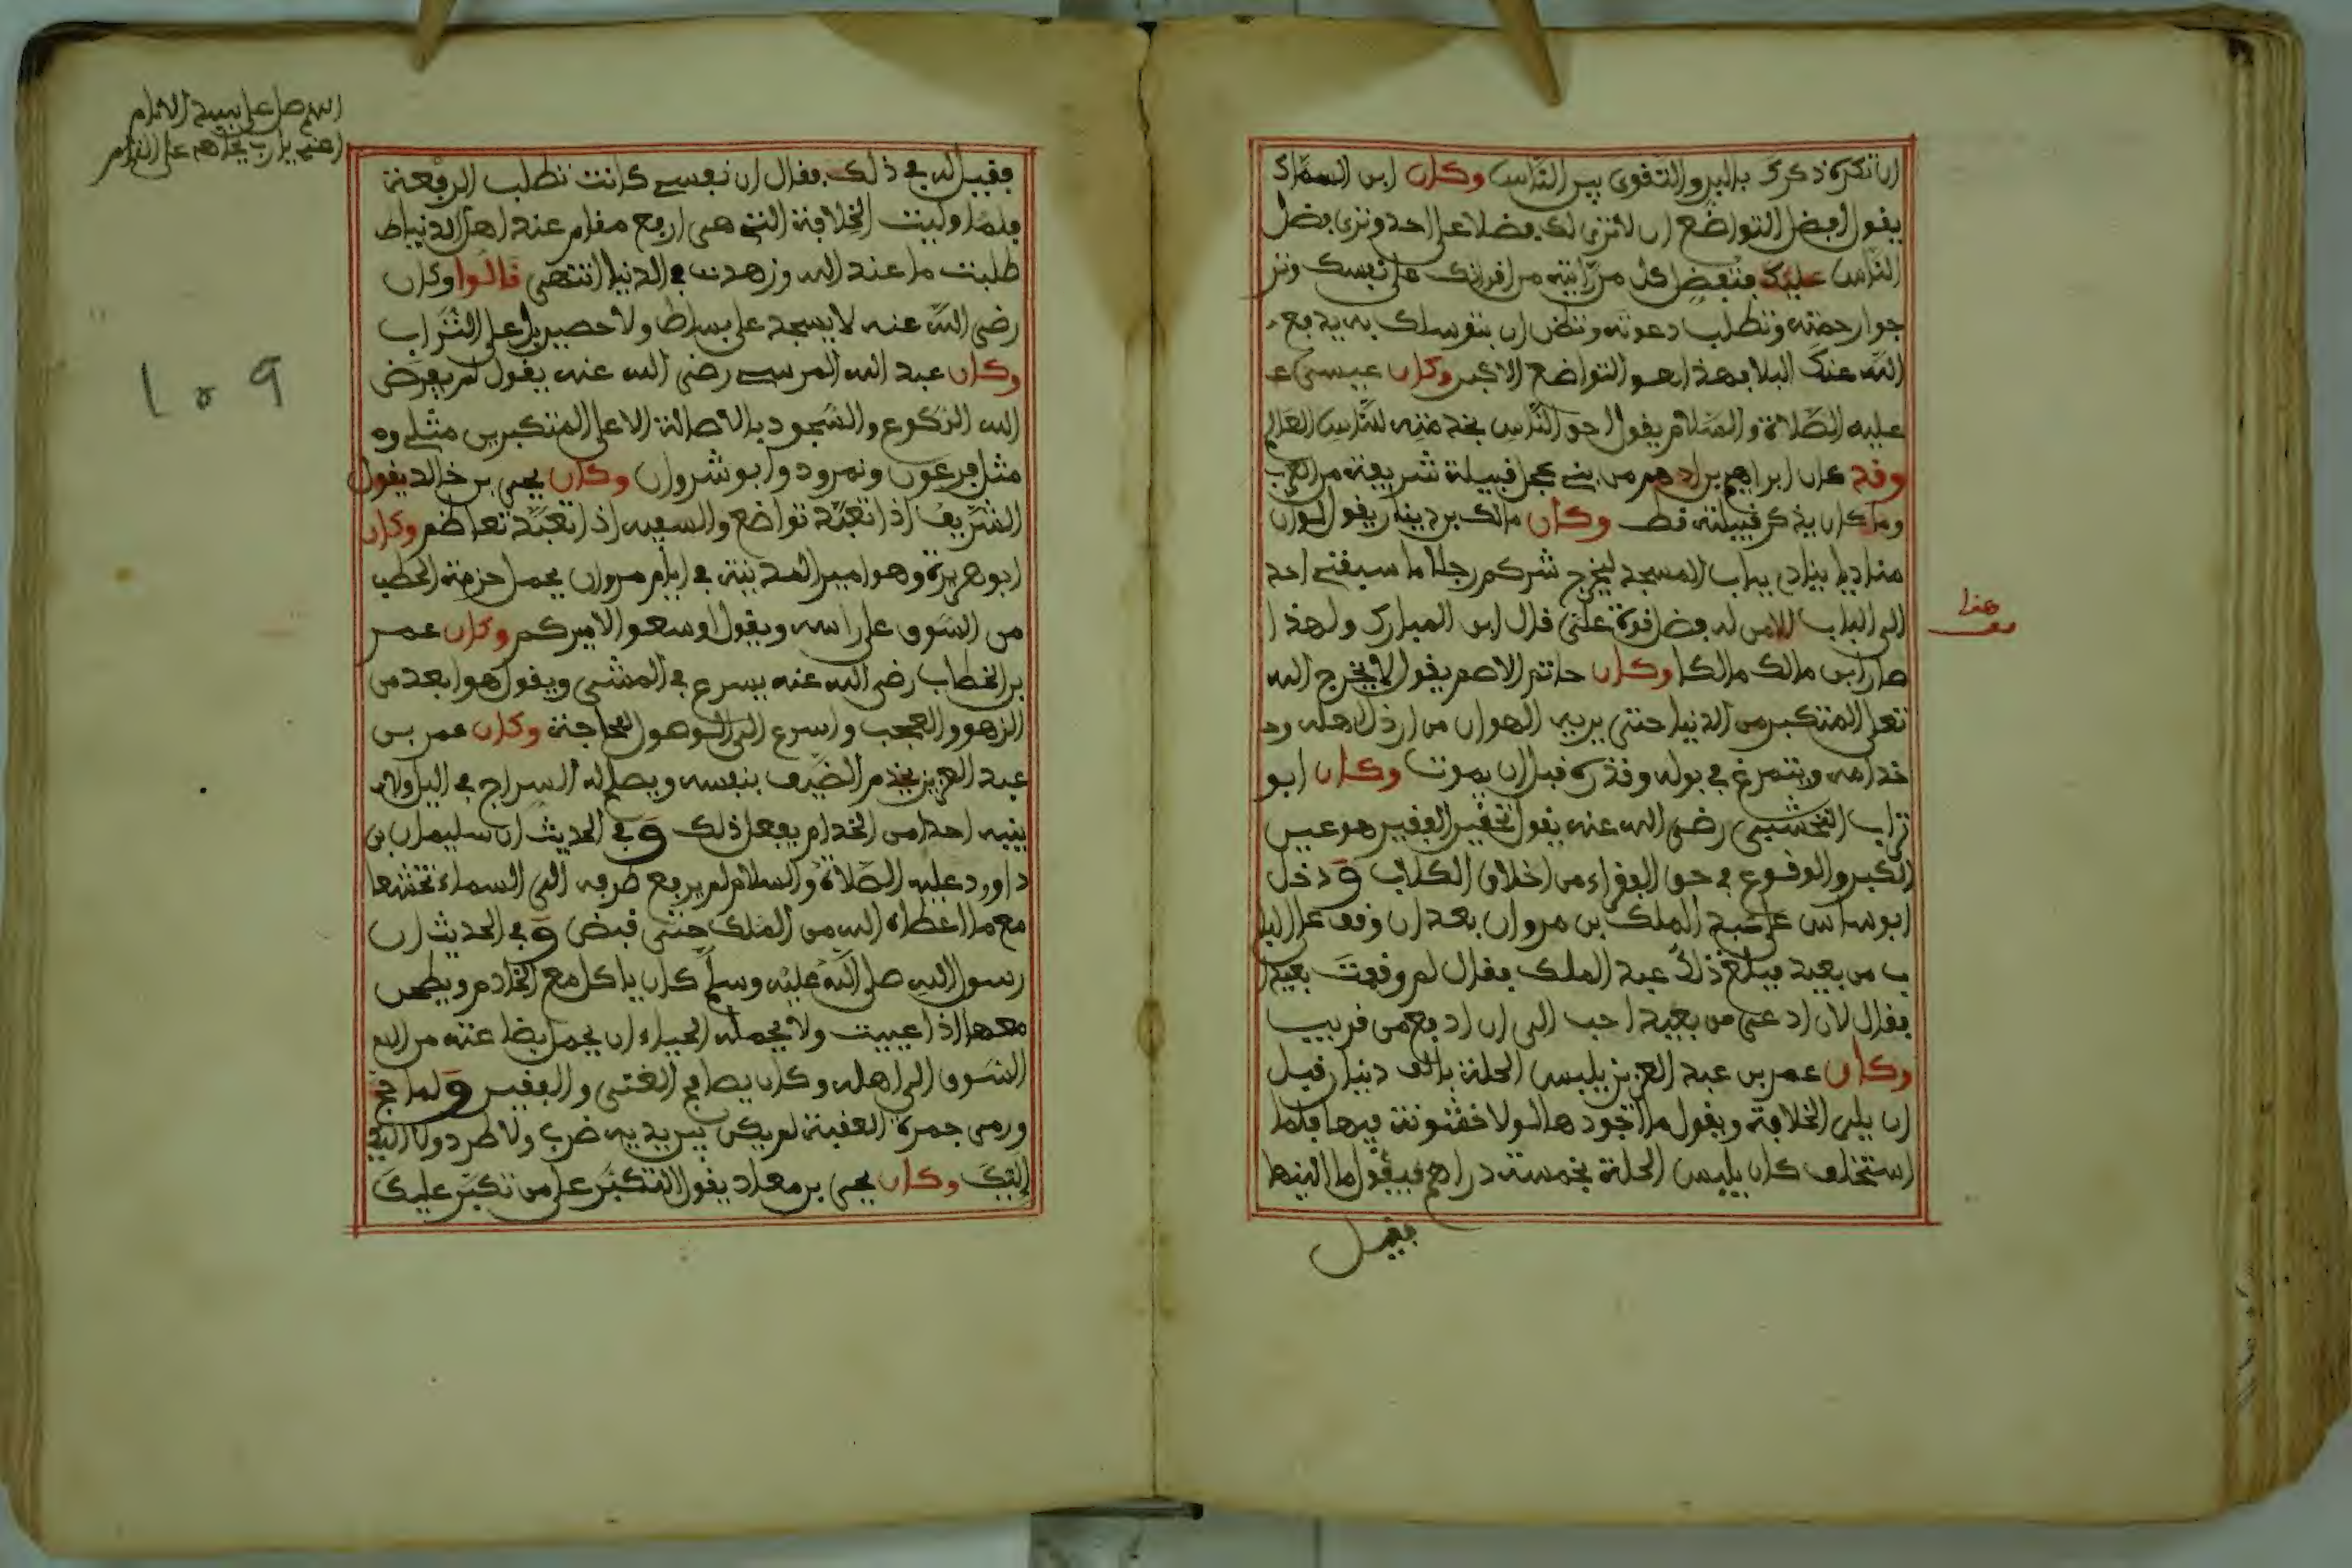 ان تكره ذكرك بالبر والتقوى بين الناس وكان ابن السماك
يقول افضل التواضع ان لا ترى لك فضلا على احد وترى فضل
الناس عليك فتفضل كل من رايته من اقرانك على نفسك وتر
جوا رحمته وتطلب دعوته وتظن ان بتوسلك به يدفع
الله عنك البلا فهذا هو التواضع الاكبر وكان عيسى ع
عليه الصلاة والسلام يقول احق الناس بخدمته للناس العالم
وقد كان ابراهيم بن ادهم من بني عجل قبيلة شريفة من العرب
وما كان يذكر قبيلته قط وكان مالك بن دينار يقول لو ان
مناديا ينادي بباب المسجد ليخرج شركم رجلا ما سبقني احد
الى الباب الا من له فضل قوة على قال ابن المبارك ولهذا
صار ابن مالك مالكا وكان حاتم الاصم يقول لا يخرج الله
تعلى المتكبر من الدنيا حتى يريه الهوان من ارذل اهله وخ
خدامه ويتمرغ في بوله وقذره قبل ان يموت وكان ابو
تراب النخشبي رضي الله عنه يقول تحقير الفقير هو عين
الكبر والوقوع في حق الفقراء من اخلاق الكلاب ودخل
ابو ساس على عبد الملك بن مروان بعد ان وقف على البا
ب من بعيد فبلغ ذلك عبد الملك فقال لم وقفت بعيدا
فقال لان ادعى من بعيد احب الي ان ادفع من قريب
وكان عمر بن عبد العزيز يلبس الحلة بالف دينار قبل
ان يلي الخلافة ويقول ما اجودها لولا خشونة فيها فلما
استخلف كان يلبس الحلة بخمسة دراهم فيقول ما الينها
فقيل
هنا
قف
فقيل له في ذلك فقال ان نفسي كانت تطلب الرفعة
فلما وليت الخلافة التي هي ارفع مقام عند اهل الدنيا ط
طلبت ما عند الله وزهدت في الدنيا انتهى قالوا وكان
رضي الله عنه لا يسجد على بساط ولا حصير بل على التراب
وكان عبد الله المرسي رضي الله عنه يقول لم يفرض
الله الركوع والسجود بالاصالة الا على المتكبرين مثلي وم
مثل فرعون ونمرود وابو شروان وكان يحيى بن خالد يقول
الشريف اذا تعبد تواضع والسفيه اذا تعبد تعاظم وكان
ابو هريرة وهو امير المدينة في ايام مروان يحمل حزمة الحطب
من السوق على راسه ويقول اوسعوا لاميركم وكان عمر
بن الخطاب رضي الله عنه يسرع في المشي ويقول هو ابعد من
الزهو والعجب واسرع الى الوصول للحاجة وكان عمر بن
عبد العزيز يخدم الضيف بنفسه ويصلح له السراج في اليل ولا
ينبه احدا من الخدام يفعل ذلك وفي الحديث ان سليمان بن
داوود عليه الصلاة والسلام لم يرفع طرفه الى السماء تخشعا
مع ما اعطاه الله من الملك حتى قبض وفي الحديث ان
رسول الله صلى الله عليه وسلم كان ياكل مع الخادم ويطحن
معها اذا عييت ولا يحمله الحياء ان يحمل بضاعته من ال
السوق الى اهله وكان يصافح الغني والفقير ولما حج
ورمى جمرة العقبة لم يكن بين يديه ضرب ولا طرد ولا اليك
اليك وكان يحيى بن معاد يقول التكبر على من تكبر عليك
اللهم صل على سيد الانام
109